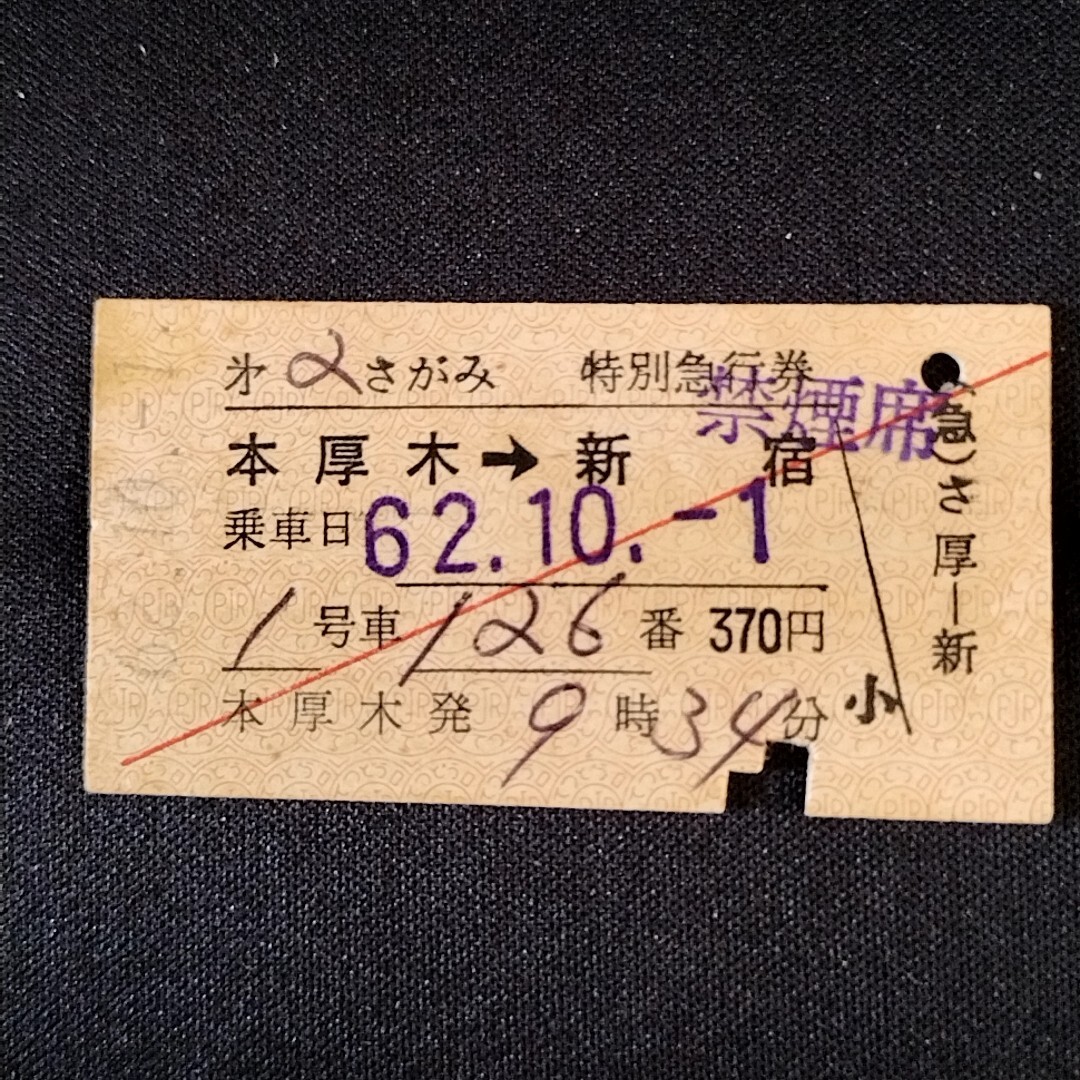 㐧2さがみ 特別急行券
禁煙席
本厚木➡新宿
乗車日 62.10.-1
1号車 126番 370円
本厚木発 9時34分
小
(急)さ 厚―新